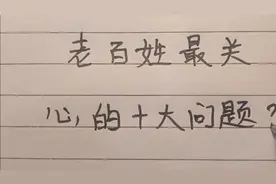 老百姓最关
心的十大问题?